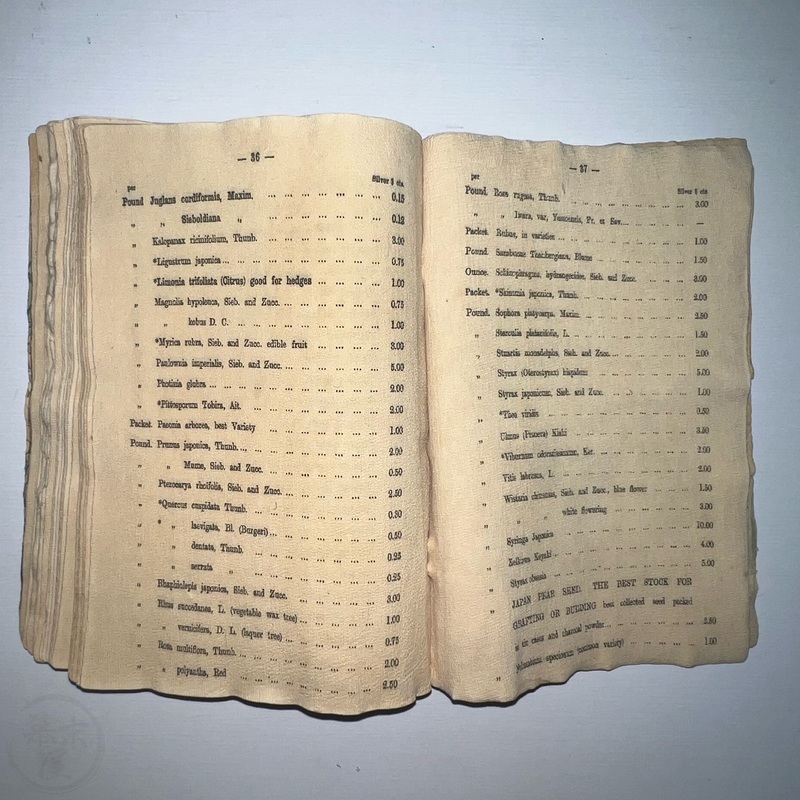 — 36 —
per Silver $ cts
Pound Juglans cordiformis, Maxim. ... ... ... ... ... ... 0.15
„ „ Sieboldiana „ ... ... ... ... ... ... 0.10
„ Kalopanax ricinifolium, Thunb. ... ... ... ... ... ... 3.00
„ *Ligustrum japonica... ... ... ... ... ... ... ... 0.75
„ *Limonia trifoliata (Citrus) good for hedges ... ... ... ... 1.00
„ Magnolia hypoleuca, Sieb. and Zucc. ... ... ... ... ... 0.75
„ „ kobus D. C. ... ... ... ... ... ... ... 1.00
„ *Myrica rubra, Sieb. and Zucc. edible fruit ... ... ... ... 3.00
„ Paulownia imperialis, Sieb. and Zucc.... ... ... ... ... 5.00
„ Photinia glabra ... ... ... ... ... ... ... ... 2.00
„ *Pittosporum Tobira, Ait. ... ... ... ... ... ... 2.00
Packet. Paeonia arborea, best Variety ... ... ... ... ... ... 1.00
Pound. Prunus japonica, Thunb.... ... ... ... ... ... ... 2.00
„ „ Mume, Sieb. and Zucc. ... ... ... ... ... 0.50
„ Pterocarya rhoifolia, Sieb. and Zucc. ... ... ... ... ... 2.50
„ *Quercus cuspidata Thunb. ... ... ... ... ... ... 0.30
„ * „ laevigata, Bl. (Burgeri)... ... ... ... ... ... 0.50
„ „ dentata, Thunb. ... ... ... ... ... ... 0.25
„ „ serrata „ ... ... ... ... ... ... 0.25
„ Rhaphiolepis japonica, Sieb. and Zucc. ... ... ... ... ... 3.00
„ Rhus succedanea, L. (vegetable wax tree) ... ... ... ... 1.00
„ „ vernicifera, D. L. (laquer tree) ... ... ... ... ... 0.75
„ Rosa multiflora, Thunb. ... ... ... ... ... ... ... 2.00
„ „ polyantha, Red ... ... ... ... ... ... 2.50
— 37 —
per Silver $ cts
Pound. Rosa rugosa, Thunb. ... ... ... ... ... ... 3.00
„ „ Iwara, var, Yesoensis, Fr. et Sav.... ... ... ... —
Packet. Rubus, in varieties ... ... ... ... ... ... ... 1.00
Pound. Sambucus ... Blume ... ... ... ... ... 1.50
Ounce. Schizophragma hydrangeoides, Sieb. and Zucc. ... ... ... 3.00
Packet. *Skimmia japonica, Thunb. ... ... ... ... ... ... 2.00
Pound. Sophora platycarpa, Maxim. ... ... ... ... ... ... 2.50
„ Sterculia platanifolia, L. ... ... ... ... ... ... 1.50
„ Stuartia monadelpha, Sieb. and Zucc.... ... ... ... ... 2.00
„ Styrax (Pterostyrax) hispidum ... ... ... ... ... 5.00
„ Styrax japonicum, Sieb. and Zucc. ... ... ... ... ... 1.00
„ *Thea viridis ... ... ... ... ... ... ... 0.50
„ Ulmus Keaki ... ... ... ... ... ... 3.50
„ *Viburnum odoratissimum, Ker. ... ... ... ... ... 2.00
„ Vitis labrusca, L. ... ... ... ... ... ... 2.00
„ Wistaria chinensis, Sieb. and Zucc., blue flower ... ... ... 1.50
„ „ „ white flowering ... ... ... ... 3.00
„ Syringa Japonica ... ... ... ... ... ... 10.00
„ Zelkowa Keyaki ... ... ... ... ... ... 4.00
„ Styrax obassia ... ... ... ... ... ... 5.00
JAPAN PEAR SEED. THE BEST STOCK FOR
GRAFTING OR BUDDING best collected seed packed
in tin cases and charcoal powder... ... ... ... ... 2.50
„ speciosum (common variety) ... ... ... 1.00